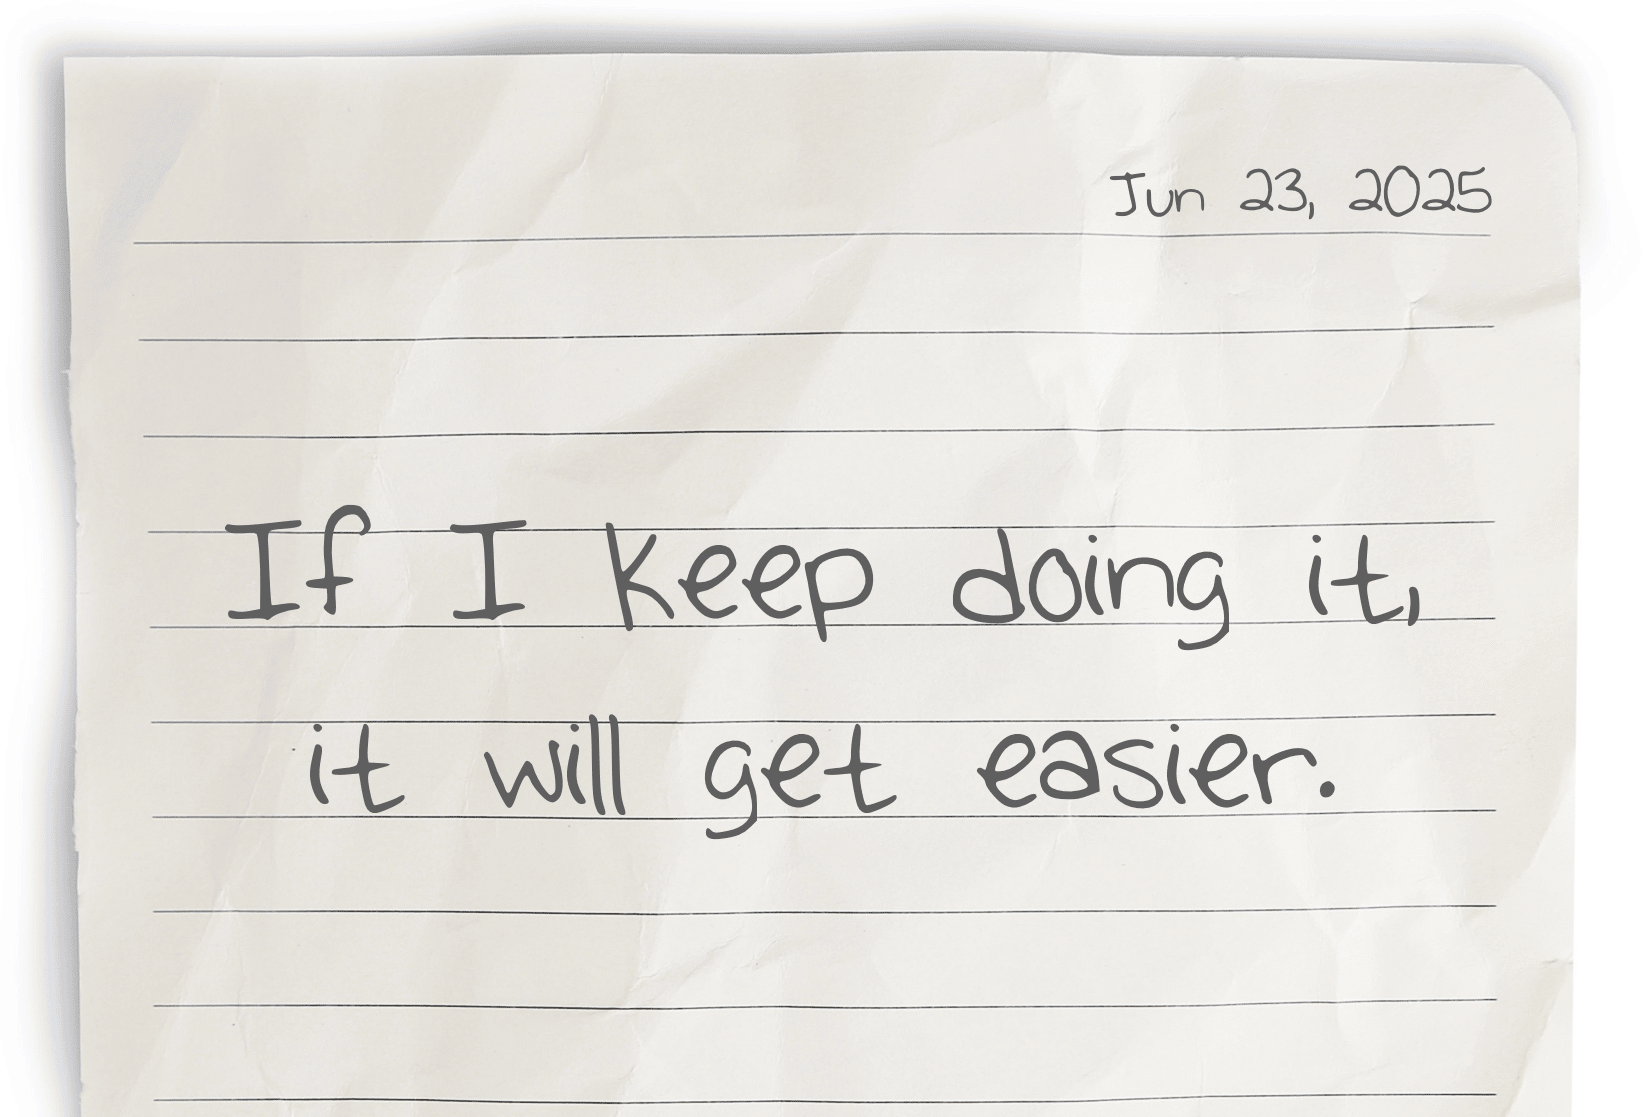 Jun 23, 2025
If I keep doing it,
it will get easier.